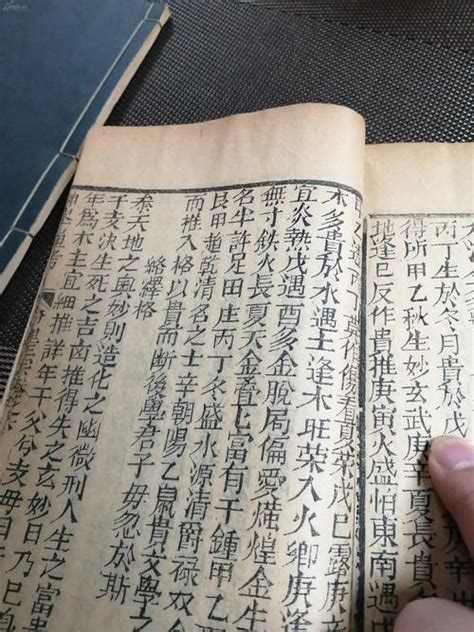 丙丁生於冬月貴於
得所甲乙秋生妙玄武庚辛夏長貴
地逢巳反作貴推庚寅火盛怕東南遇
丙丁莫作傷看貴榮戊己露庚
木多貴於水遇土逢木旺榮入火鄉庚逢
宜炎熱戊遇酉多金脫局偏愛熿煌金生
無寸鉄火長夏天金疊疊富有千鍾甲乙
名牛許足田庄丙丁冬盛水源清爵祿双
艮甲趨乾清名之士辛朝陽乙鼠貴文學之
而推入格以貴而斷後學君子毋忽於斯
絡繹格
叅天地之奥妙則造化之幽微刑人生之富貴
干支決生死之吉凶推得失之玄妙日乃
年為木主宜細推詳年干父分支母自己